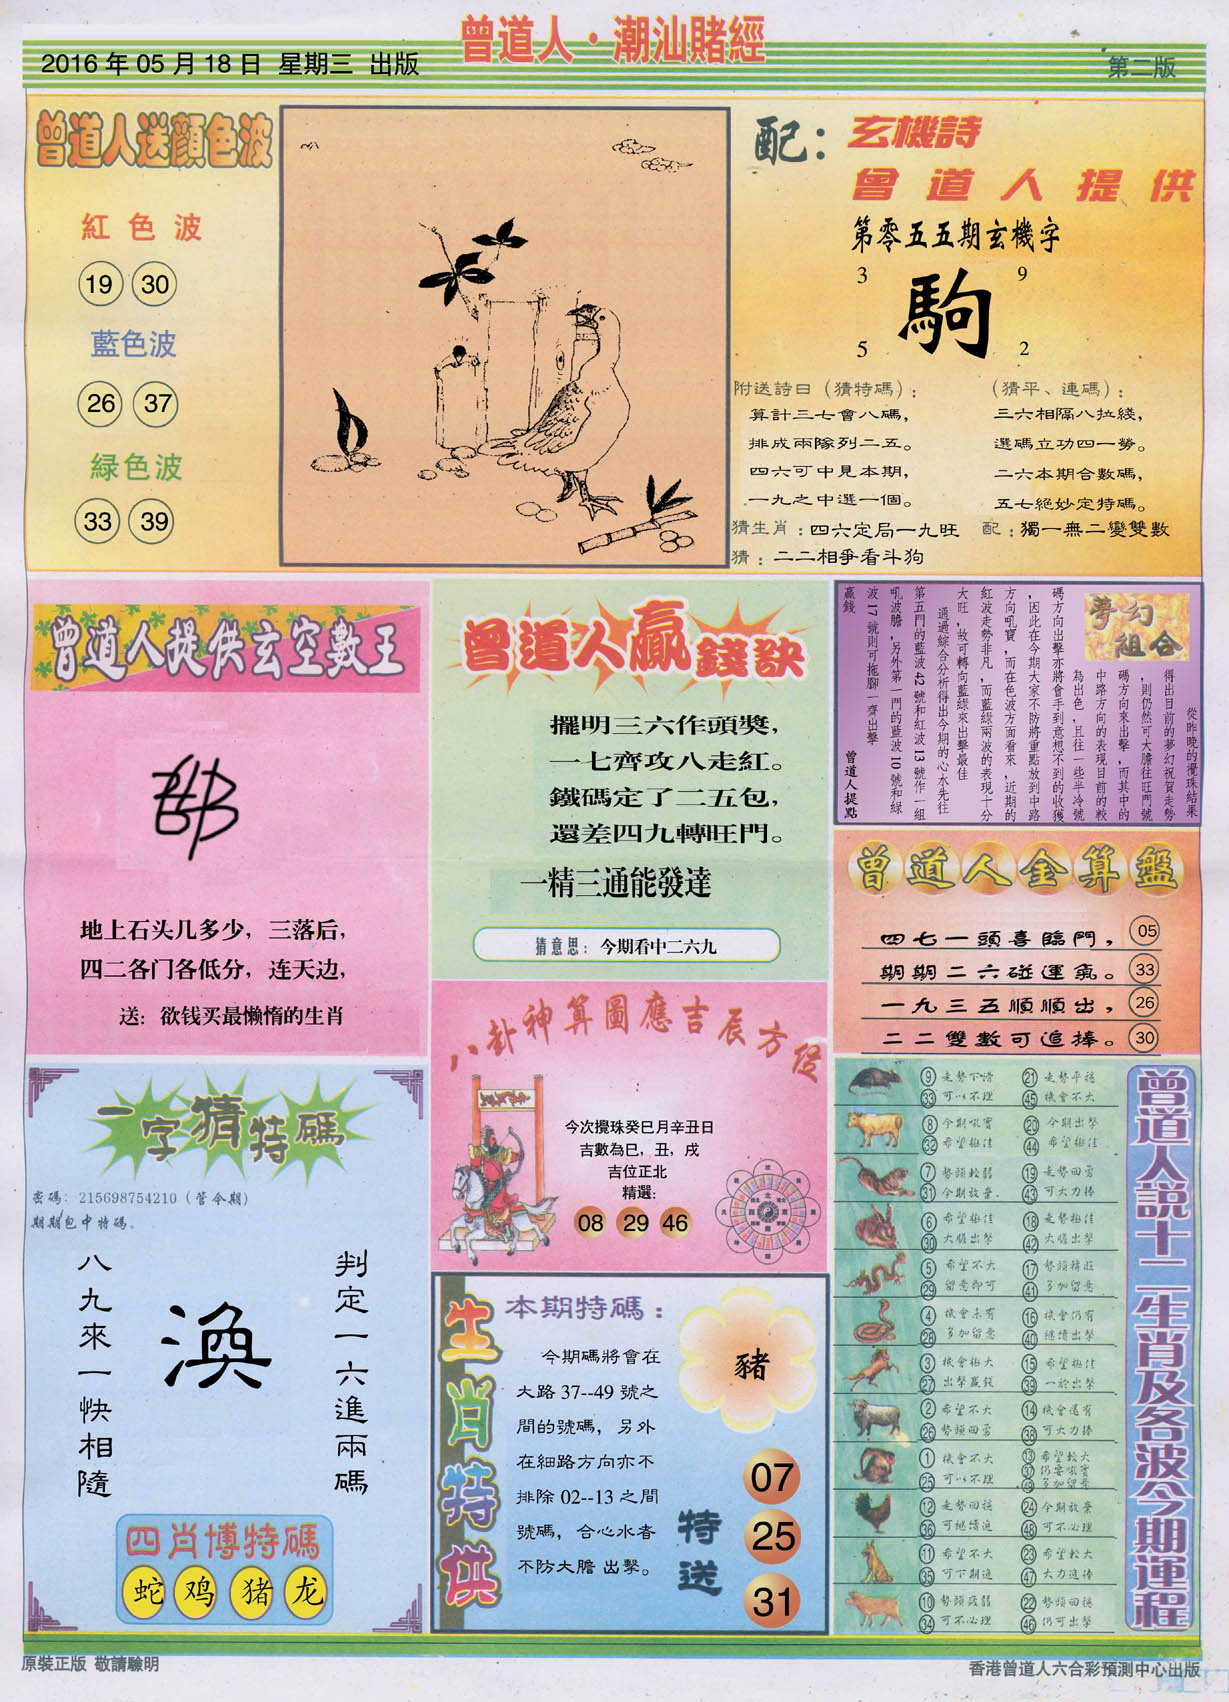 曾道人·潮汕賭經
2016 年 05 月 18 日 星期三 出版
第二版
曾道人送顏色波
紅色波
19 30
藍色波
26 37
緑色波
33 39
配：玄機詩
曾道人提供
第零五五期玄機字
3 9
駒
5 2
附送詩曰（猜特碼）：
算計三七會八碼，
排成兩隊列二五。
四六可中見本期，
一九之中選一個。
（猜平、連碼）：
三六相隔八拉綫，
選碼立功四一勞。
二六本期合數碼，
五七絕妙定特碼。
猜生肖：四六定局一九旺 配：獨一無二變雙數
猜：二二相爭看斗狗
曾道人提供玄空數王
地上石头几多少，三落后，
四二各门各低分，连天边，
送：欲钱买最懒惰的生肖
曾道人贏錢訣
擺明三六作頭獎，
一七齊攻八走紅。
鐵碼定了二五包，
還差四九轉旺門。
一精三通能發達
猜意思：今期看中二六九
夢幻組合
從昨晚的攪珠結果
得出目前的夢幻祝賀走勢
，則仍然可大膽往旺門號
碼方向來出擊，而其中的
中路方向的表現目前的較
為出色，且往一些半冷號
碼方向出擊亦將會手到意想不到的收獲
，因此在今期大家不防將重點放到中路
方向吼寶，而在色波方面看來，近期的
紅波走勢非凡，而藍綠兩波的表現十分
大旺，故可轉向藍綠來出擊最佳
通過綜合分析得出今期的心水先往
第五門的藍波42號和紅波13號作一組
吼波膽，另外第一門的藍波10號和綠
波17號則可拖腳一齊出擊
贏錢 曾道人提點
曾道人金算盤
四七一頭喜臨門， 05
期期二六碰運氣。 33
一九三五順順出， 26
二二雙數可追捧。 30
八卦神算圖應吉辰方位
今次攪珠癸巳月辛丑日
吉數為巳，丑，戌
吉位正北
精選：
08 29 46
一字猜特碼
密碼：215698754210（管令期）
期期包中特碼。
判定一六進兩碼
渙
八九來一快相隨
四肖博特碼
蛇 鸡 猪 龙
生肖特供
本期特碼：
今期碼將會在
大路 37--49 號之
間的號碼，另外
在細路方向亦不
排除 02--13 之間
號碼，合心水者
不防大膽 出擊。
豬
特送
07
25
31
曾道人説十二生肖及各波今期運程
9 走勢下滑 21 走勢平穩
33 可以不理 45 機會不大
8 今期吼寶 20 今期出擊
32 希望極佳 44 希望極佳
7 勢頭較弱 19 走勢回勇
31 今期放棄. 43 可大力捧
6 希望極佳 18 走勢極佳
30 大膽出擊 42 大膽出擊
5 希望不大 17 勢頭精旺
29 留意即可 41 多加留意
4 機會未有 16 機會仍有
28 多加留意 40 繼續出擊
3 機會極大 15 希望極佳
27 出擊贏錢 39 一於出擊
2 希望不大 14 機會還有
26 勢頭回勇 38 可大力捧
1 機會不大 13 希望較大
25 可以不理 37 仍要吼寶
49 多加留意
12 走勢回穩 24 今期放棄
36 可繼續追 48 可不必理
11 希望不大 23 希望較大
35 可下期追 47 大力追捧
10 勢頭疲弱 22 勢頭回穩
34 可不必理 46 仍可出擊
原裝正版 敬請驗明
香港曾道人六合彩預測中心出版